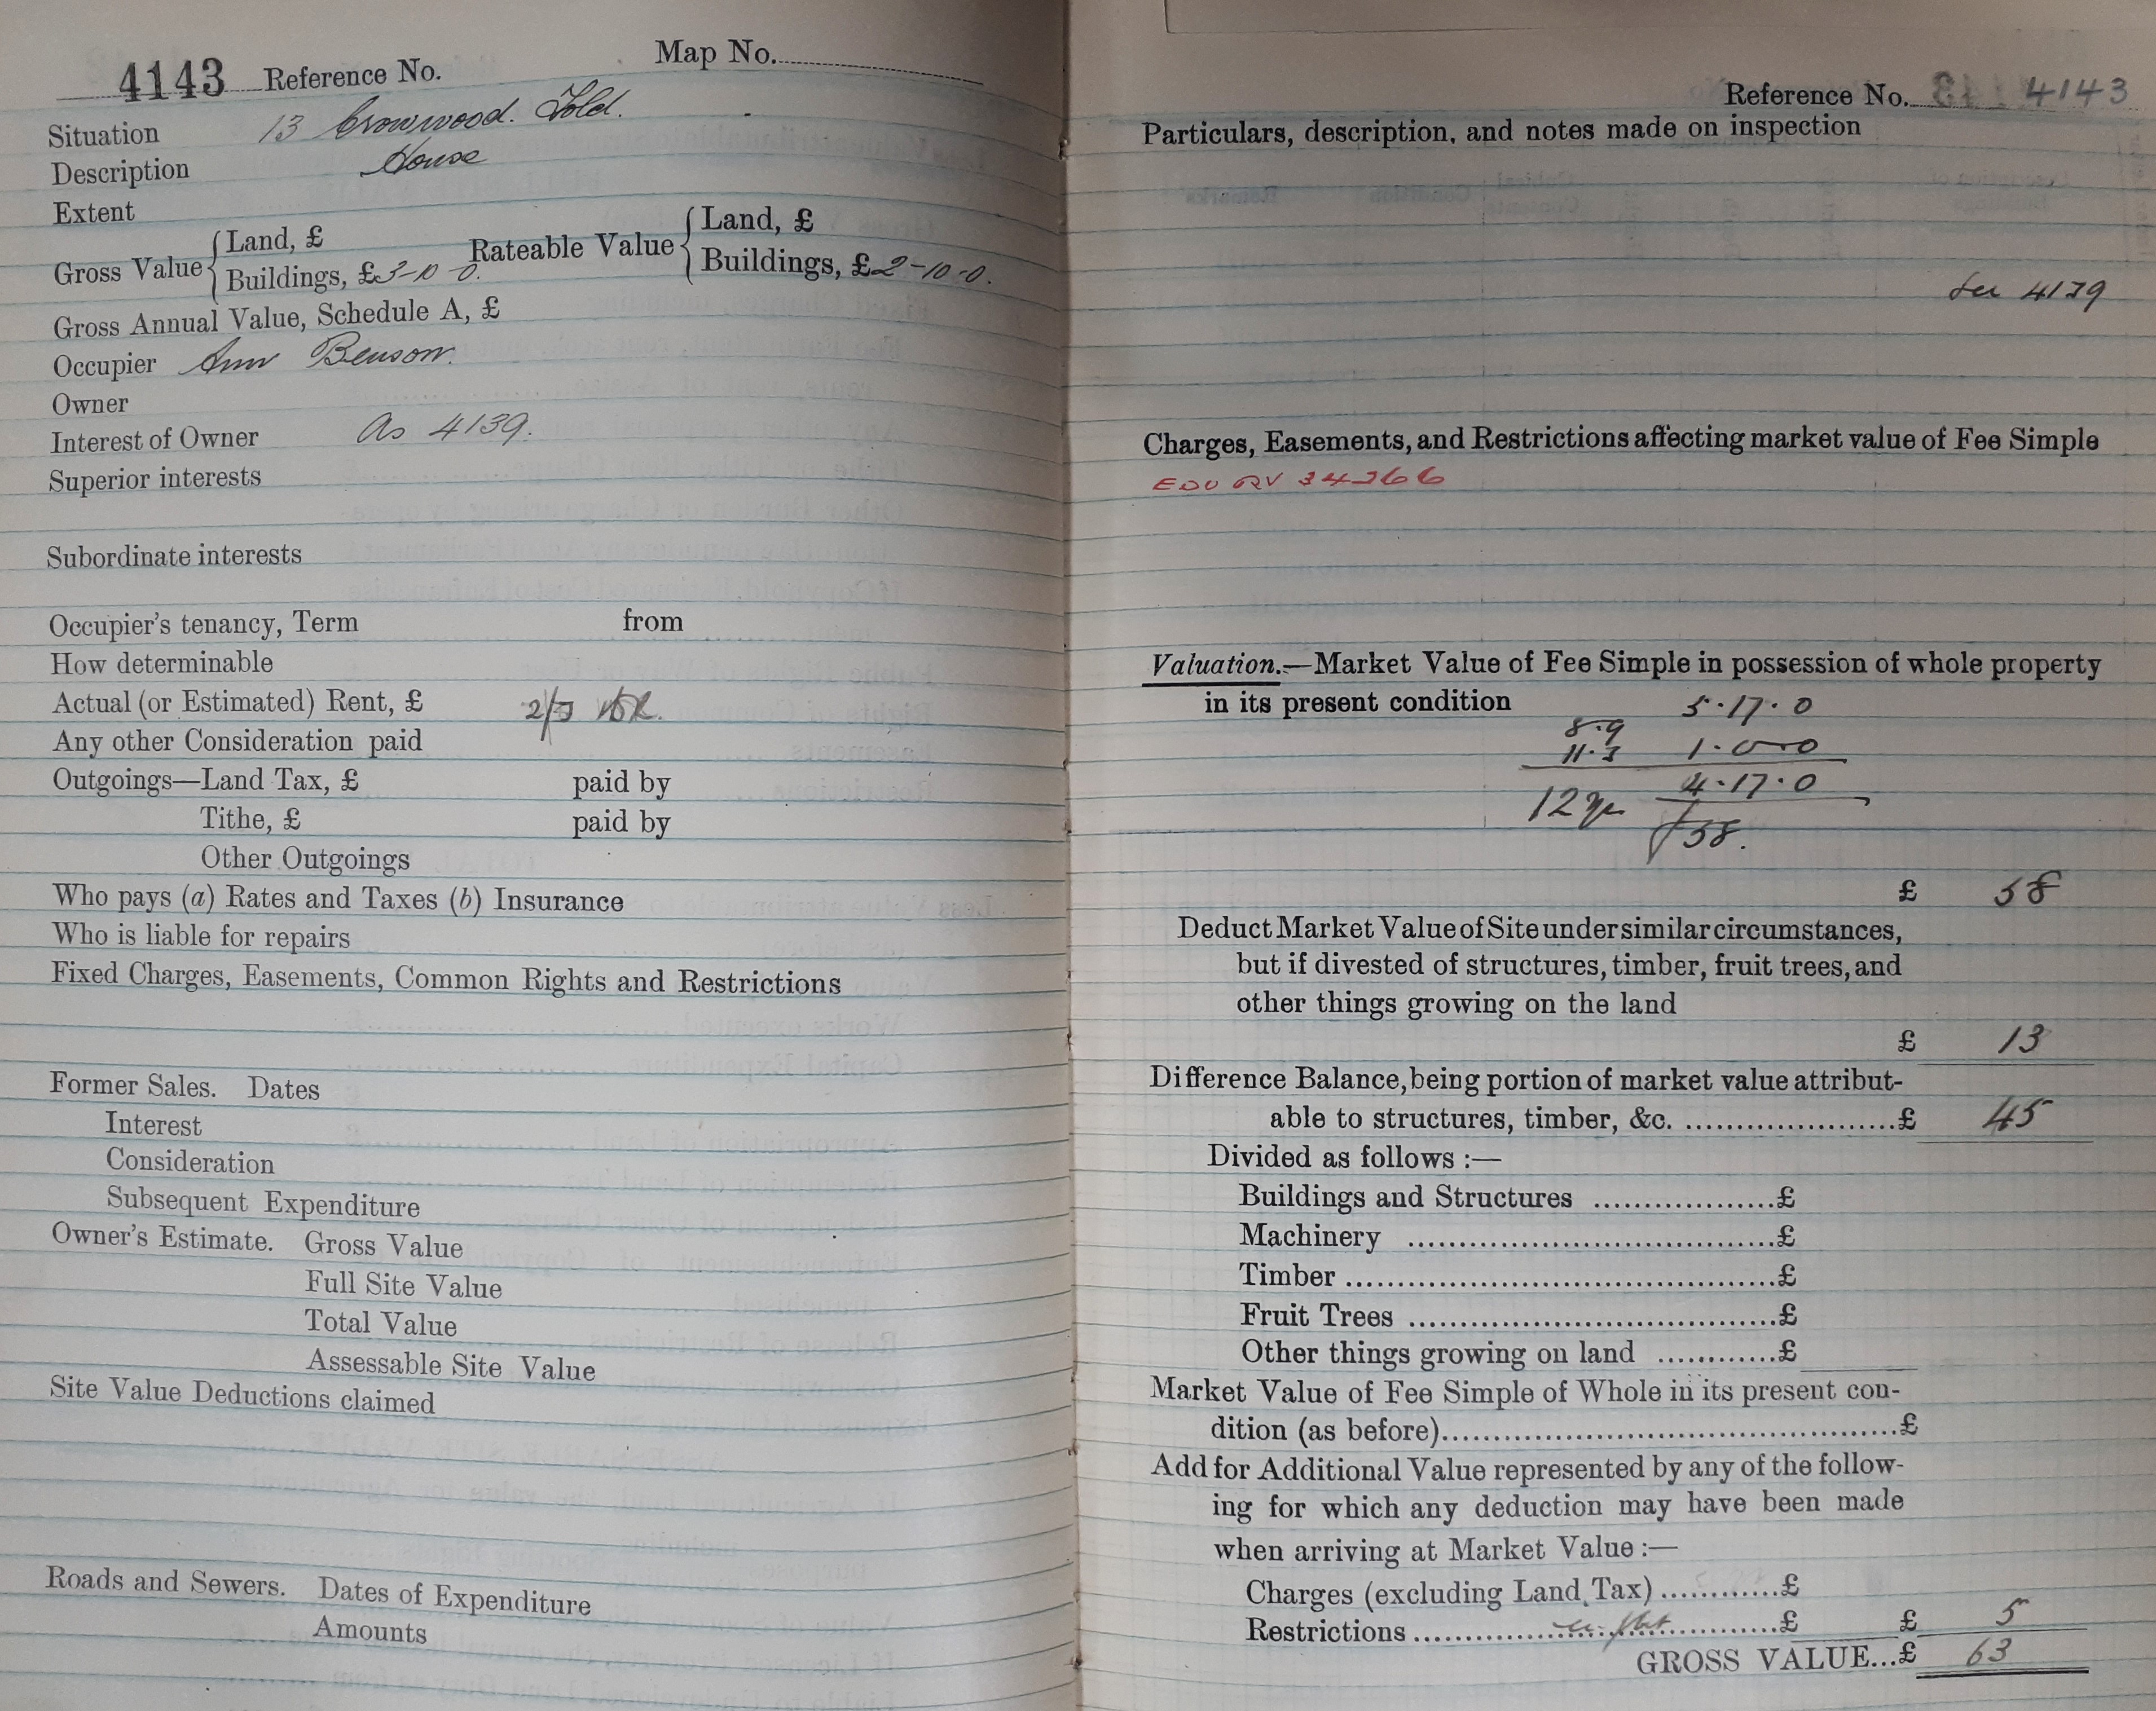 Map No.
4143 Reference No.
Situation 13 Crowwood. Fold.
Description House
Extent
Gross Value { Land, £
Buildings, £3-10-0.
Rateable Value { Land, £
Buildings, £2-10-0.
Gross Annual Value, Schedule A, £
Occupier Ann Benson.
Owner
Interest of Owner As 4139.
Superior interests
Subordinate interests
Occupier's tenancy, Term from
How determinable
Actual (or Estimated) Rent, £ 2/3
Any other Consideration paid
Outgoings—Land Tax, £ paid by
Tithe, £ paid by
Other Outgoings
Who pays (a) Rates and Taxes (b) Insurance
Who is liable for repairs
Fixed Charges, Easements, Common Rights and Restrictions
Former Sales. Dates
Interest
Consideration
Subsequent Expenditure
Owner's Estimate. Gross Value
Full Site Value
Total Value
Assessable Site Value
Site Value Deductions claimed
Roads and Sewers. Dates of Expenditure
Amounts
Reference No. 4143
Particulars, description, and notes made on inspection
See 4139
Charges, Easements, and Restrictions affecting market value of Fee Simple
Valuation.—Market Value of Fee Simple in possession of whole property
in its present condition 5.17.0
8.9
11.3 1.0.0
4.17.0
12 yp £58.
£ 58
Deduct Market Value of Site under similar circumstances,
but if divested of structures, timber, fruit trees, and
other things growing on the land
£ 13
Difference Balance, being portion of market value attribut-
able to structures, timber, &c. ......................£ 45
Divided as follows :—
Buildings and Structures ...................£
Machinery ......................................£
Timber ............................................£
Fruit Trees ......................................£
Other things growing on land ............£
Market Value of Fee Simple of Whole in its present con-
dition (as before)................................................£
Add for Additional Value represented by any of the follow-
ing for which any deduction may have been made
when arriving at Market Value :—
Charges (excluding Land Tax) ............£
Restrictions ......................................£ £ 5
GROSS VALUE...£ 63